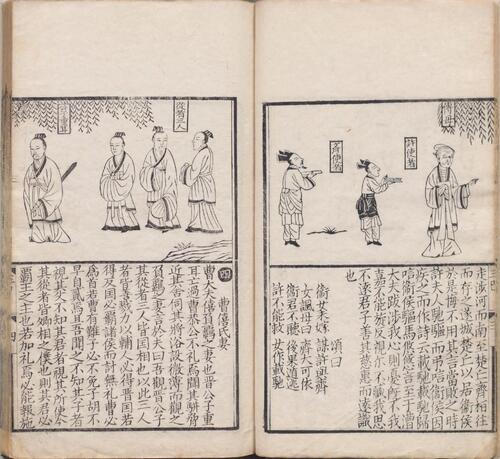 許使者
齊使者
走涉河而南至楚丘齊桓往
而存之遂城楚丘以居衛侯
於是悔不用其言當敗之時
許夫人馳驅而弔唁衛侯因
疾之而作詩云載馳載驅歸
唁衛侯驅馬悠悠言至于漕
大夫跋涉我心則憂既不我
嘉不能旋反視爾不臧我思
不遠君子善其慈惠而遠識
也
頌曰
衛女未嫁 謀許與齊
女諷母曰 齊大可依
衛君不聽 後果遁逃
許不能救 女作載馳
從者三人
四 曹僖氏妻
曹大夫僖負羈之妻也晉公子重
耳亡過曹恭公不礼焉聞其駢脅
近其舍伺其將浴設微薄而觀之
負羈之妻言於夫曰吾觀晉公子
其從者三人皆國相也以此三人
者皆善戮力以輔人必得晉國若
得反國必霸諸侯而討無礼曹必
為首若曹有難子必不免子胡不
早自貳焉且吾聞之不知其子者
視其父不知其君者視其所使今
其從者皆卿相之僕也則其君必
霸王之主也若加礼焉必能報施